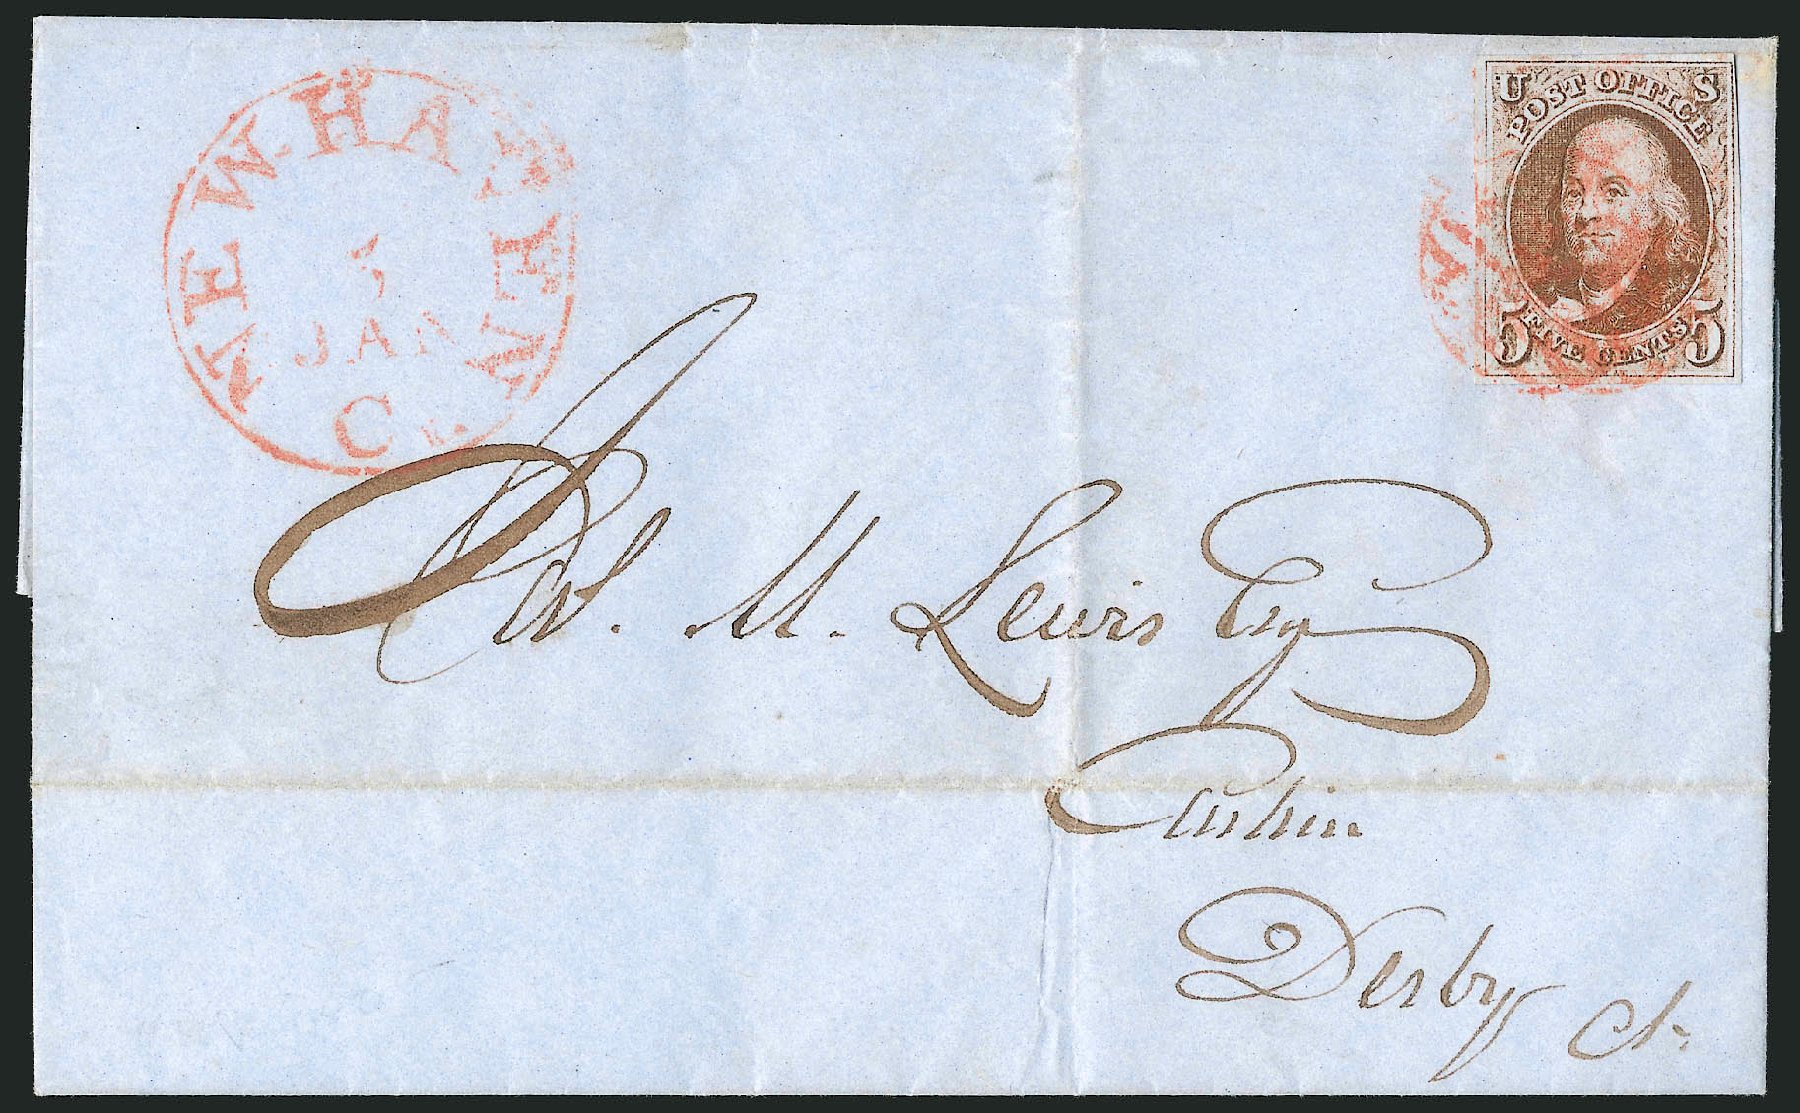 NEW-HAVEN
5
JAN
Ct.
U S
POST OFFICE
5 FIVE CENTS 5
M. Lewis Esq
Cashier
Derby Ct.